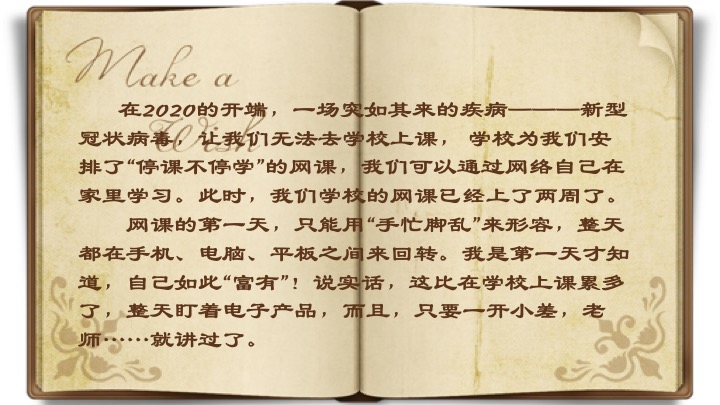 Make a
Wish
在2020的开端，一场突如其来的疾病———新型
冠状病毒，让我们无法去学校上课， 学校为我们安
排了“停课不停学”的网课，我们可以通过网络自己在
家里学习。此时，我们学校的网课已经上了两周了。
网课的第一天，只能用“手忙脚乱”来形容，整天
都在手机、电脑、平板之间来回转。我是第一天才知
道，自己如此“富有”！说实话，这比在学校上课累多
了，整天盯着电子产品，而且，只要一开小差，老
师……就讲过了。